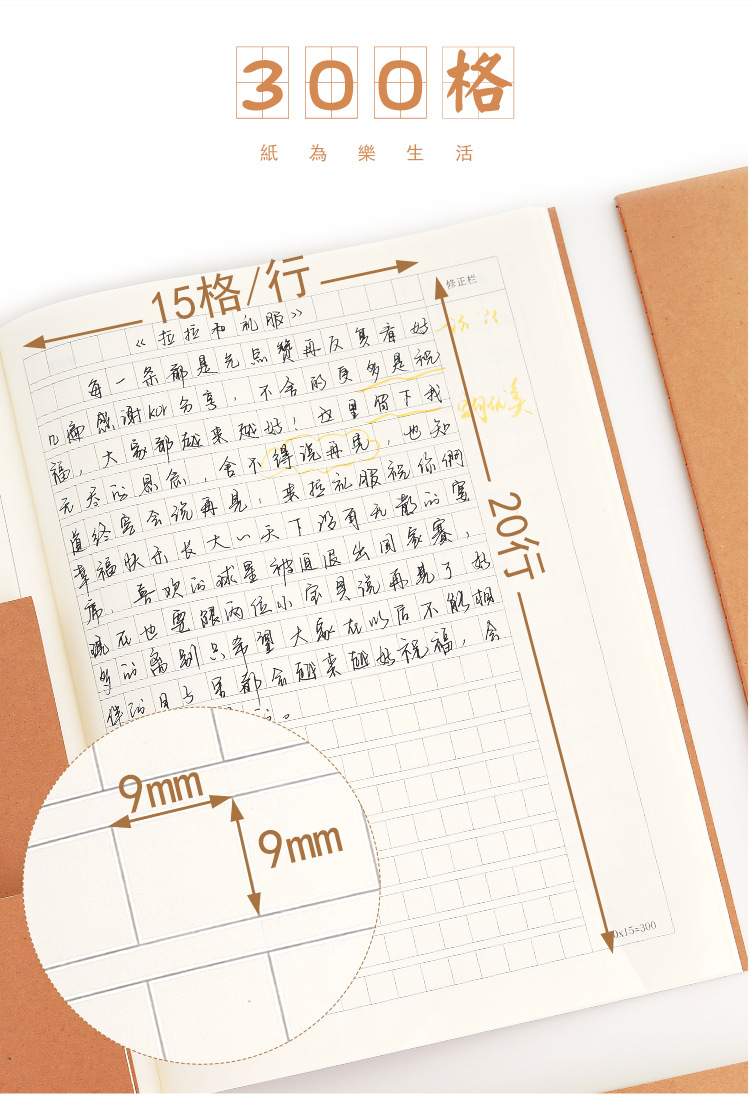 300格
紙為樂生活
15格/行
修正栏
《拉拉和礼服》
每一条都是先点赞再反复看 好
感谢 kor 分享，不舍的 多是祝
福，大家都越来越好！这里留下我
无尽的思念，舍不得说再见，也知
道终究会说再见，来拉礼服祝你们
幸福快乐长大，天下没有不散的宴
席，喜欢的球星被迫退出国家赛，
现在也要跟两位小宝贝说再见了 好
多的离别只希望大家在以后不能相
伴的日子里都会越来越好祝福，会
20行
9mm
9mm
x15=300